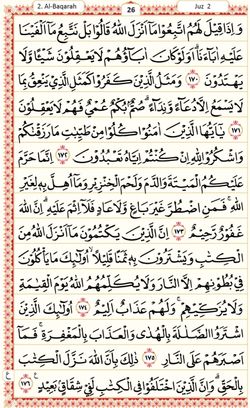 2. Al-Baqarah 26 Juz 2
وَاِذَا قِيْلَ لَهُمُ اتَّبِعُوْا مَآ اَنْزَلَ اللّٰهُ قَالُوْا بَلْ نَتَّبِعُ مَآ اَلْفَيْنَا
عَلَيْهِ اٰبَآءَنَا ۗ اَوَلَوْ كَانَ اٰبَآؤُهُمْ لَا يَعْقِلُوْنَ شَيْـًٔا وَّلَا
يَهْتَدُوْنَ ١٧٠ وَمَثَلُ الَّذِيْنَ كَفَرُوْا كَمَثَلِ الَّذِيْ يَنْعِقُ بِمَا
لَا يَسْمَعُ اِلَّا دُعَآءً وَّنِدَآءً ۗ صُمٌّۢ بُكْمٌ عُمْيٌ فَهُمْ لَا يَعْقِلُوْنَ
١٧١ يٰٓاَيُّهَا الَّذِيْنَ اٰمَنُوْا كُلُوْا مِنْ طَيِّبٰتِ مَا رَزَقْنٰكُمْ
وَاشْكُرُوْا لِلّٰهِ اِنْ كُنْتُمْ اِيَّاهُ تَعْبُدُوْنَ ١٧٢ اِنَّمَا حَرَّمَ
عَلَيْكُمُ الْمَيْتَةَ وَالدَّمَ وَلَحْمَ الْخِنْزِيْرِ وَمَآ اُهِلَّ بِهٖ لِغَيْرِ
اللّٰهِ ۚ فَمَنِ اضْطُرَّ غَيْرَ بَاغٍ وَّلَا عَادٍ فَلَآ اِثْمَ عَلَيْهِ ۗ اِنَّ اللّٰهَ
غَفُوْرٌ رَّحِيْمٌ ١٧٣ اِنَّ الَّذِيْنَ يَكْتُمُوْنَ مَآ اَنْزَلَ اللّٰهُ مِنَ
الْكِتٰبِ وَيَشْتَرُوْنَ بِهٖ ثَمَنًا قَلِيْلًاۙ اُولٰۤىِٕكَ مَا يَأْكُلُوْنَ
فِيْ بُطُوْنِهِمْ اِلَّا النَّارَ وَلَا يُكَلِّمُهُمُ اللّٰهُ يَوْمَ الْقِيٰمَةِ
وَلَا يُزَكِّيْهِمْ ۚ وَلَهُمْ عَذَابٌ اَلِيْمٌ ١٧٤ اُولٰۤىِٕكَ الَّذِيْنَ
اشْتَرَوُا الضَّلٰلَةَ بِالْهُدٰى وَالْعَذَابَ بِالْمَغْفِرَةِ ۚ فَمَآ
اَصْبَرَهُمْ عَلَى النَّارِ ١٧٥ ذٰلِكَ بِاَنَّ اللّٰهَ نَزَّلَ الْكِتٰبَ
بِالْحَقِّ ۗ وَاِنَّ الَّذِيْنَ اخْتَلَفُوْا فِى الْكِتٰبِ لَفِيْ شِقَاقٍۢ بَعِيْدٍ ١٧٦ ع